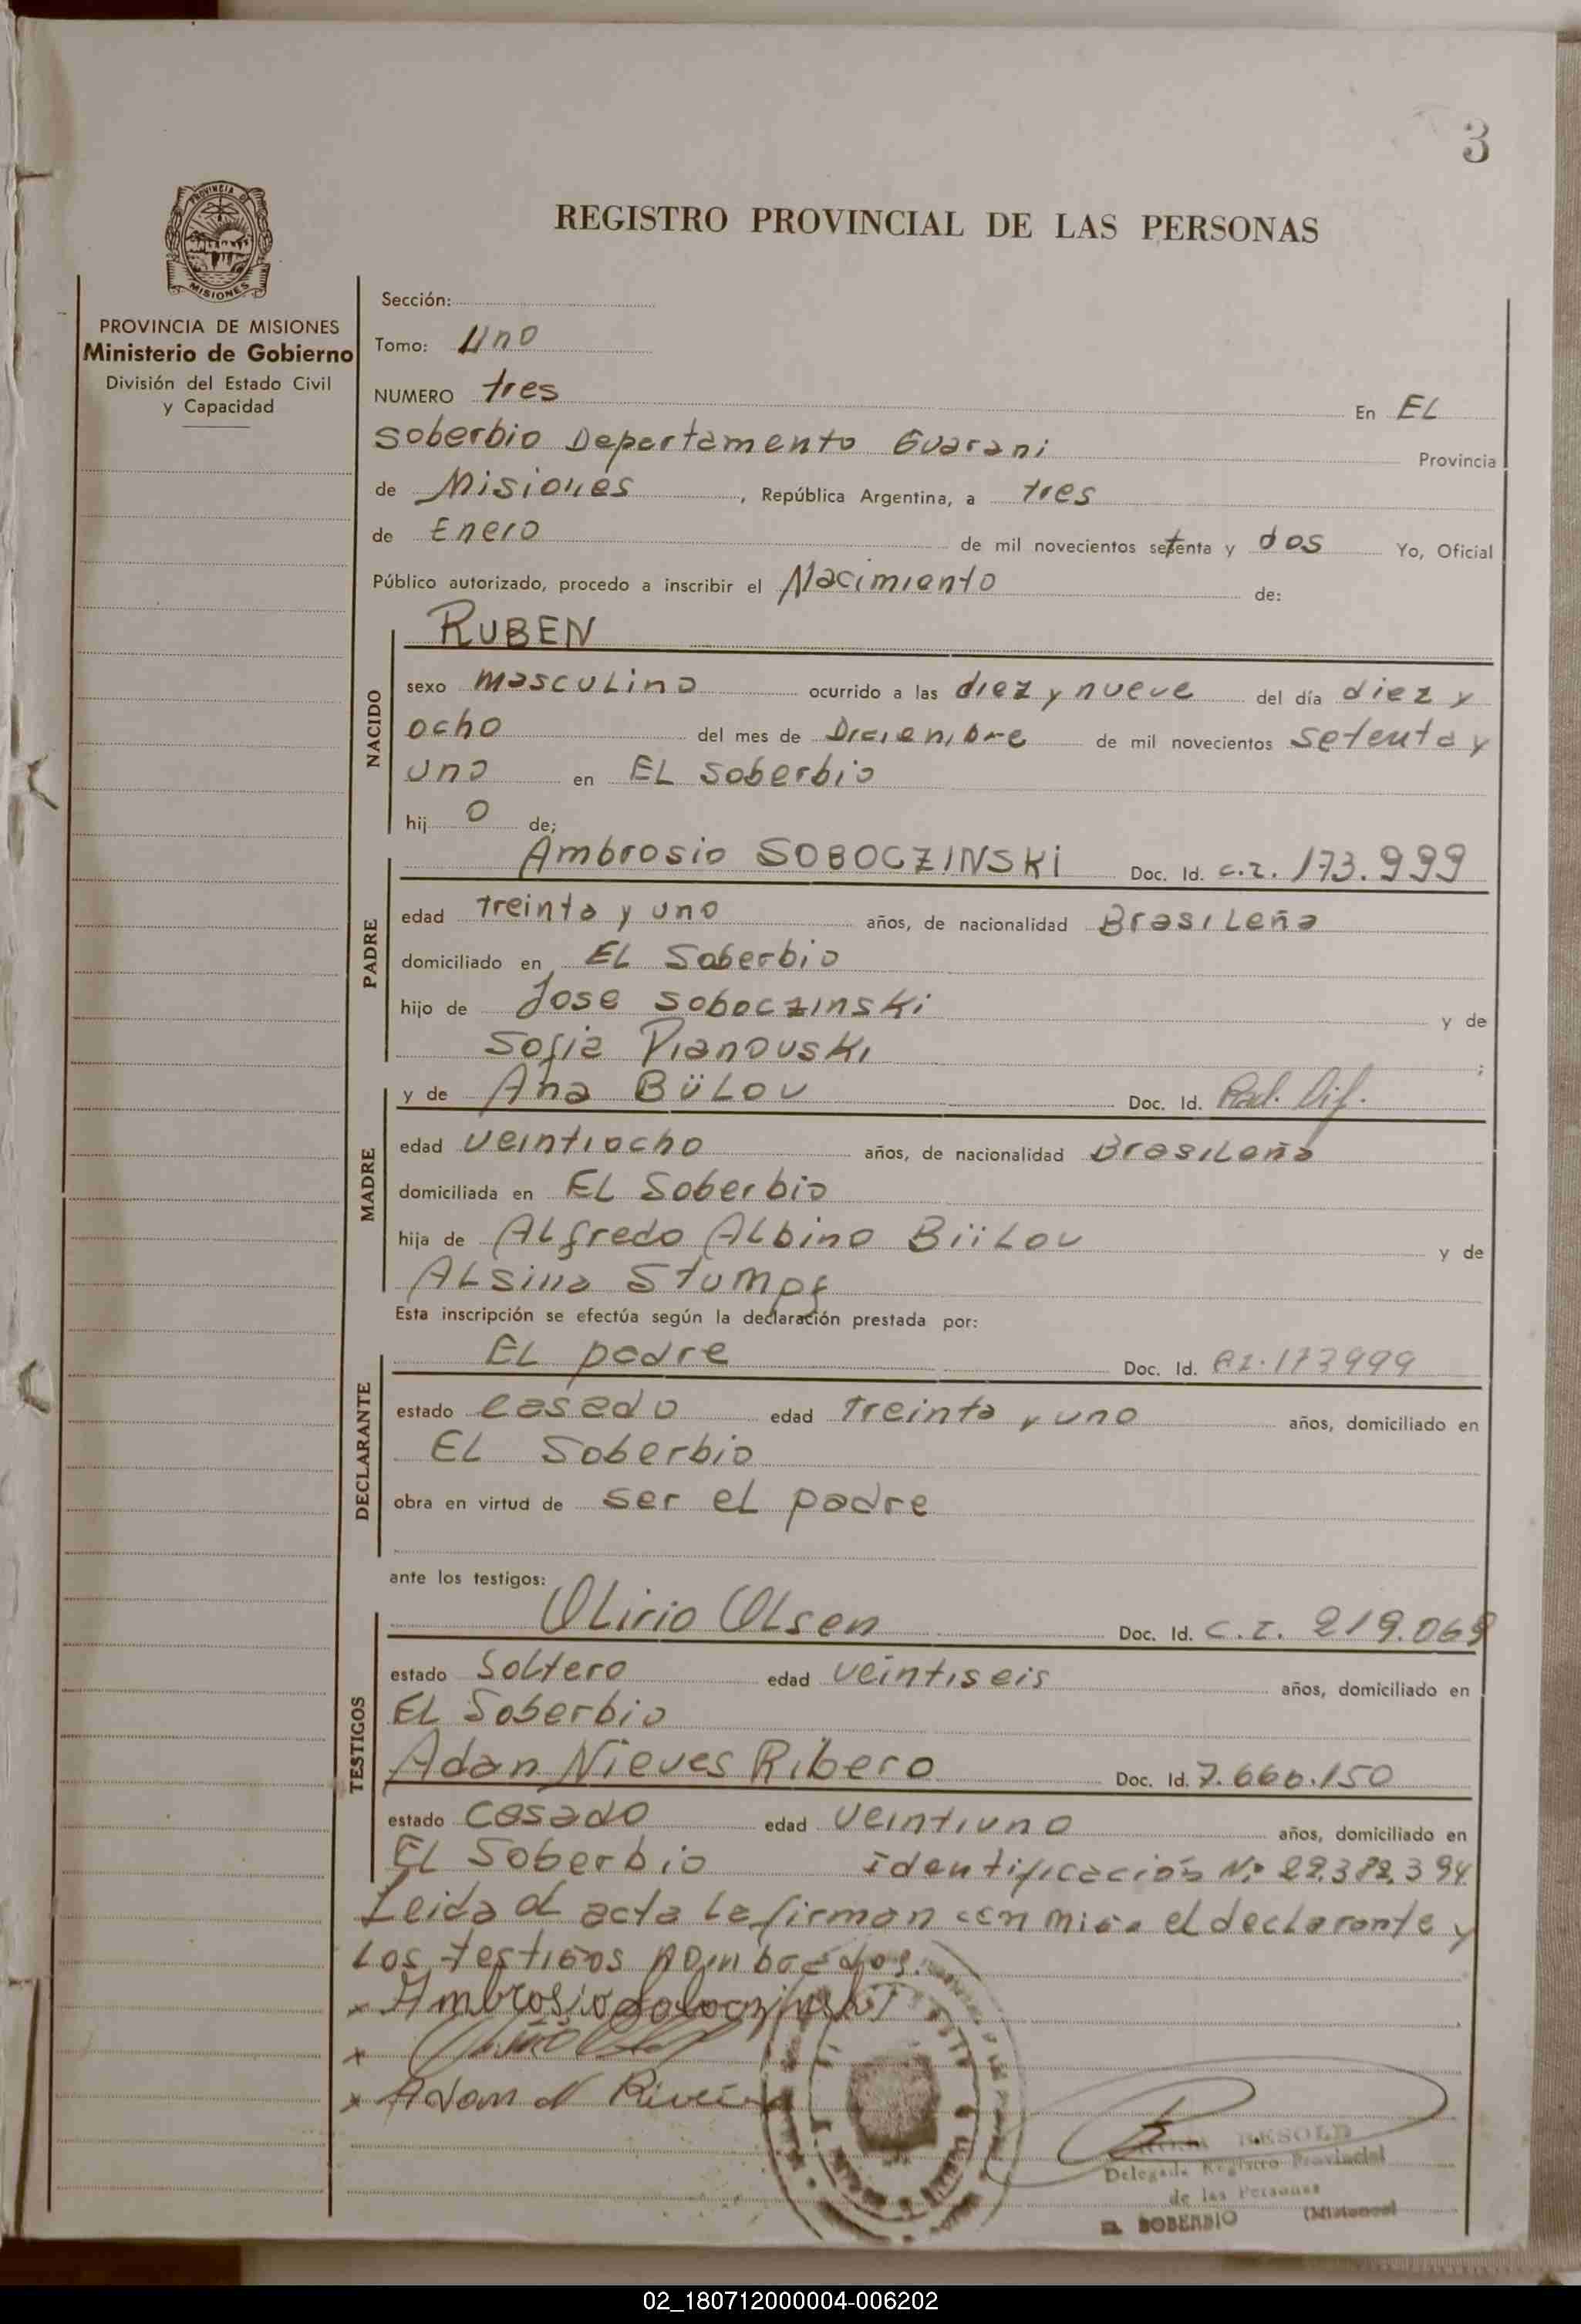 3
PROVINCIA DE
MISIONES
REGISTRO PROVINCIAL DE LAS PERSONAS
PROVINCIA DE MISIONES
Ministerio de Gobierno
División del Estado Civil
y Capacidad
Sección:
Tomo: Uno
NUMERO tres En EL
Soberbio Departamento Guarani Provincia
de Misiones, República Argentina, a tres
de Enero de mil novecientos setenta y dos Yo, Oficial
Público autorizado, procedo a inscribir el Nacimiento de:
NACIDO
RUBEN
sexo masculino ocurrido a las diez y nueve del día diez y
ocho del mes de Diciembre de mil novecientos setenta y
uno en EL Soberbio
hij o de;
PADRE
Ambrosio SOBOCZINSKi Doc. Id. C.I. 173.999
edad Treinta y uno años, de nacionalidad Brasileña
domiciliado en EL Soberbio
hijo de Jose Soboczinski y de
Sofia Pianouski ;
MADRE
y de Ana BüLou Doc. Id.
edad veintiocho años, de nacionalidad Brasileña
domiciliada en EL Soberbio
hija de ALfredo ALbino BüLou y de
ALsina Stumpf
Esta inscripción se efectúa según la declaración prestada por:
DECLARANTE
EL padre Doc. Id. CI. 173999
estado casado edad Treinta y uno años, domiciliado en
EL Soberbio
obra en virtud de ser el padre
ante los testigos:
TESTIGOS
Olirio Olsen Doc. Id. C.I. 219.069
estado Soltero edad veintiseis años, domiciliado en
EL Soberbio
Adan Nieves Ribero Doc. Id. 7.666.150
estado casado edad veintiuno años, domiciliado en
EL Soberbio identificación Nº 22.382.394
Leida el acta la firman con migo el declarante y
Los testigos nombrados.
x Ambrosio Soboczinski
x
x Adan N Rivero
BESOLD
Delegada Registro Provincial
de las Personas
EL SOBERBIO (Misiones)
02_180712000004-006202